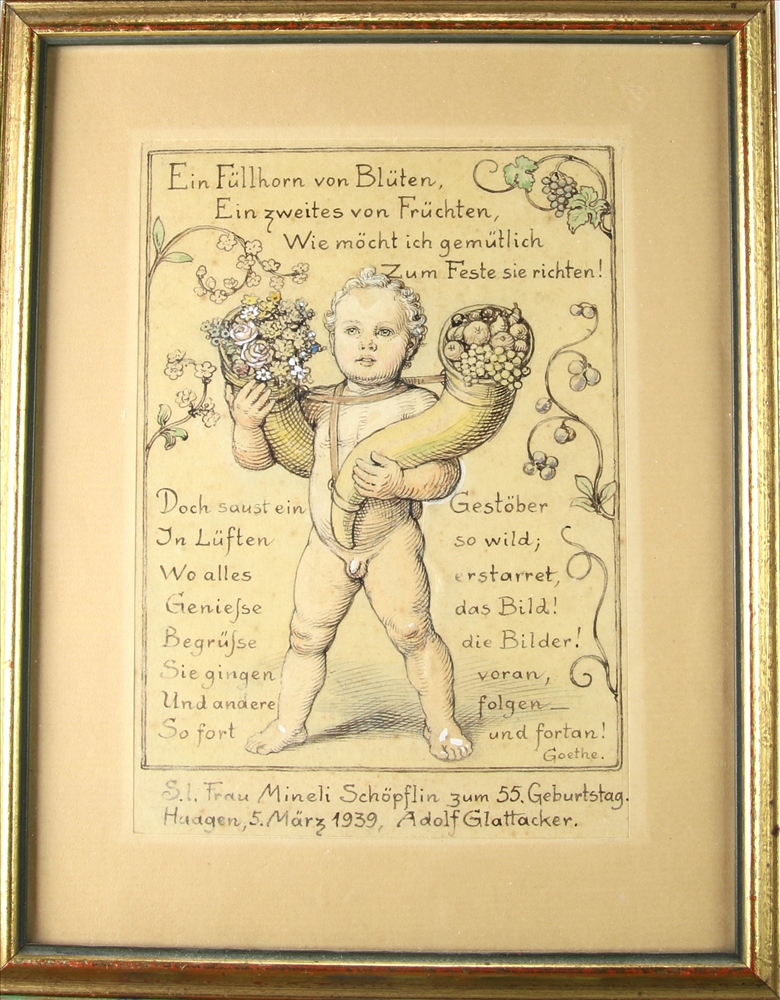 Ein Füllhorn von Blüten,
Ein zweites von Früchten,
Wie möcht ich gemütlich
Zum Feste sie richten!
Doch saust ein Gestöber
In Lüften so wild;
Wo alles erstarret,
Genieſse das Bild!
Begrüſse die Bilder!
Sie gingen voran,
Und andere folgen—
So fort und fortan!
Goethe.
S.l. Frau Mineli Schöpflin zum 55. Geburtstag.
Haagen, 5. März 1939, Adolf Glattacker.